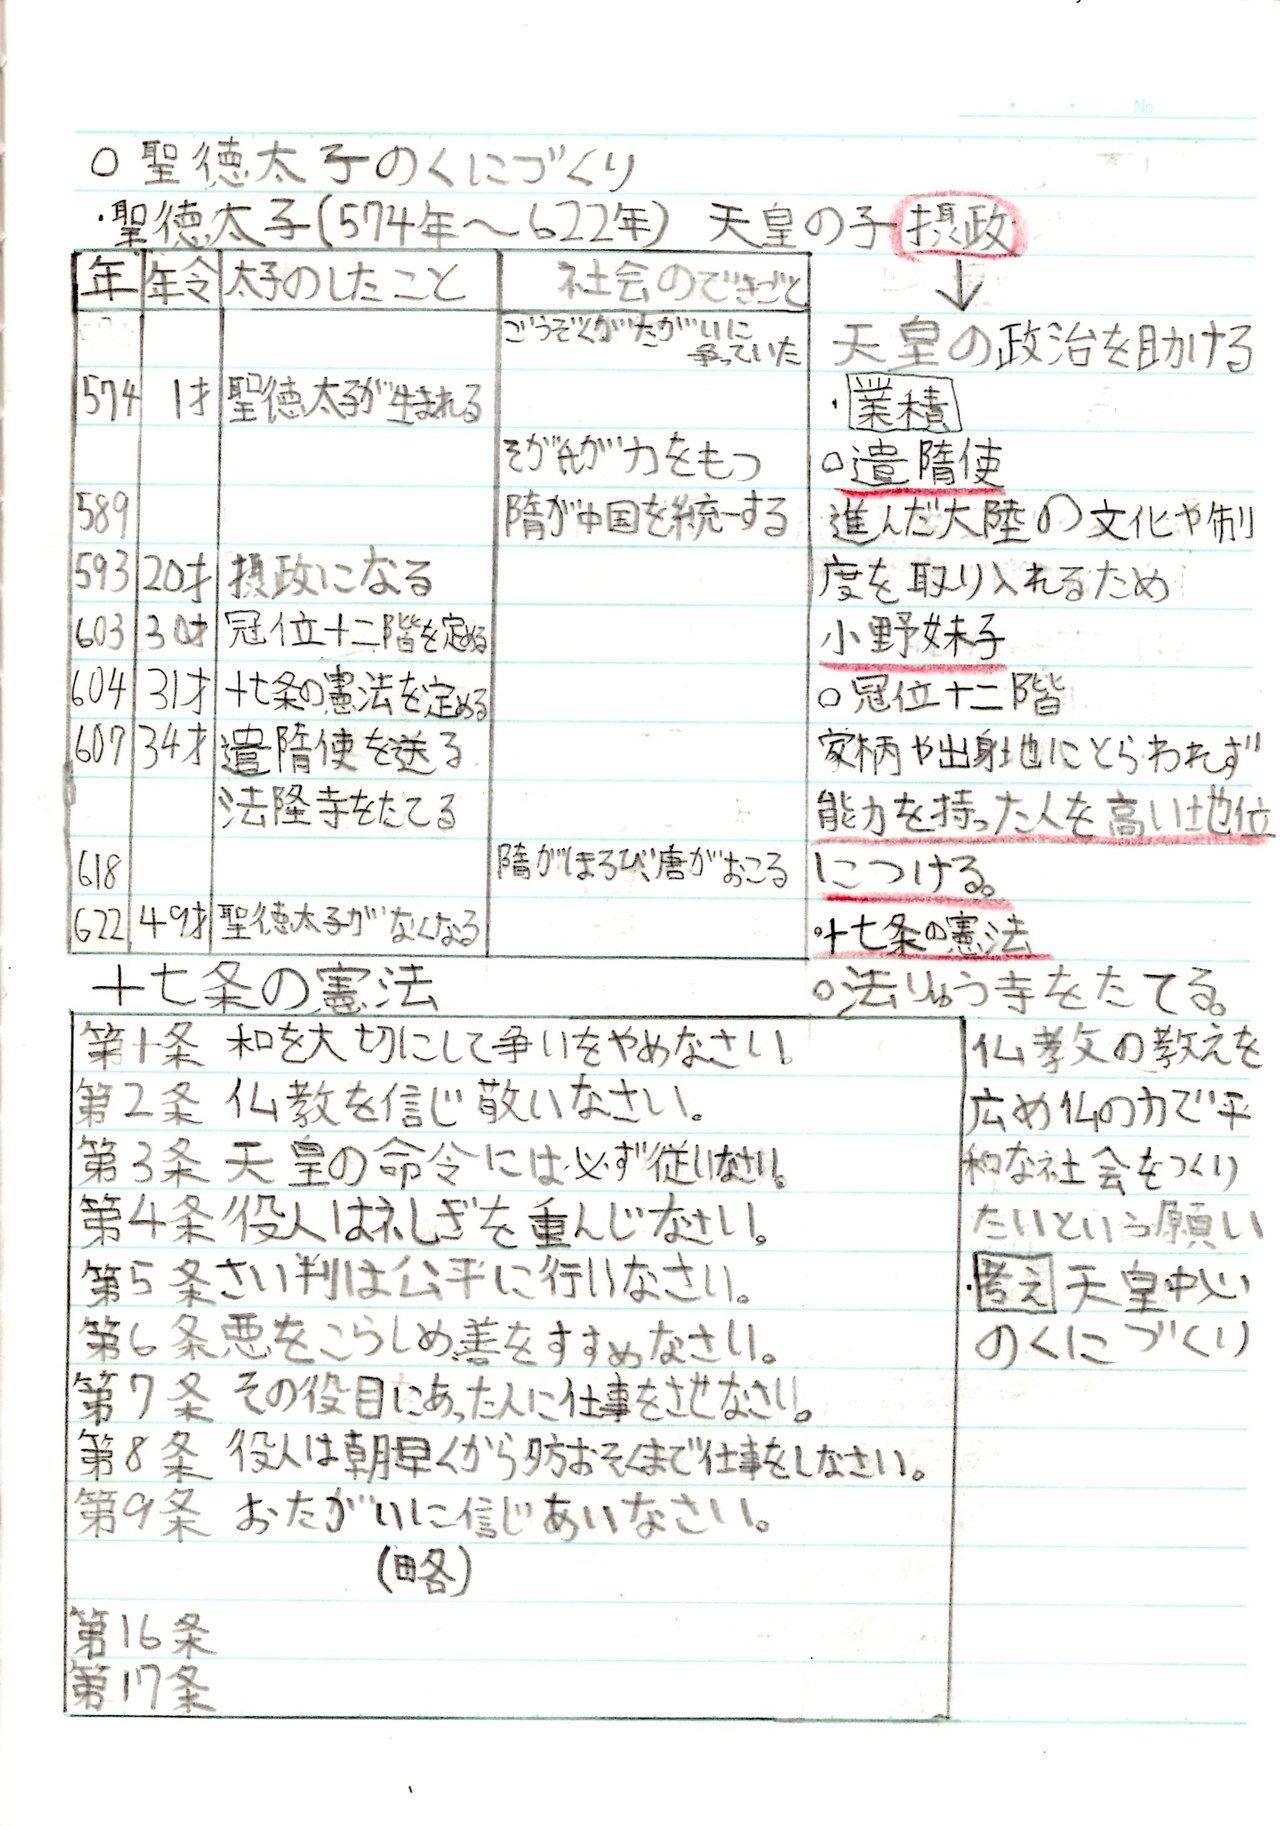 No.
○聖徳太子のくにづくり
・聖徳太子(574年～622年) 天皇の子 摂政
↓
天皇の政治を助ける
年 年令 太子のしたこと 社会のできごと
ごうぞくがたがいに
争っていた
574 1才 聖徳太子が生まれる
そが氏が力をもつ
589 隋が中国を統一する
593 20才 摂政になる
603 30才 冠位十二階を定める
604 31才 十七条の憲法を定める
607 34才 遣隋使を送る
法隆寺をたてる
618 隋がほろび、唐がおこる
622 49才 聖徳太子がなくなる
・業積
○遣隋使
進んだ大陸の文化や制
度を取り入れるため
小野妹子
○冠位十二階
家柄や出身地にとらわれず
能力を持った人を高い地位
につける。
○十七条の憲法
○法りゅう寺をたてる。
仏孝文の教えを
広め仏の力で平
和な社会をつくり
たいという願い
・考え 天皇中心
のくにづくり
十七条の憲法
第1条 和を大切にして争いをやめなさい。
第2条 仏教を信じ敬いなさい。
第3条 天皇の命令には必ず従いなさい。
第4条 役人は礼しぎを重んじなさい。
第5条 さい判は公平に行いなさい。
第6条 悪をこらしめ善をすすめなさい。
第7条 その役目にあった人に仕事をさせなさい。
第8条 役人は朝早くから夕方おそくまで仕事をしなさい。
第9条 おたがいに信じあいなさい。
(略)
第16条
第17条